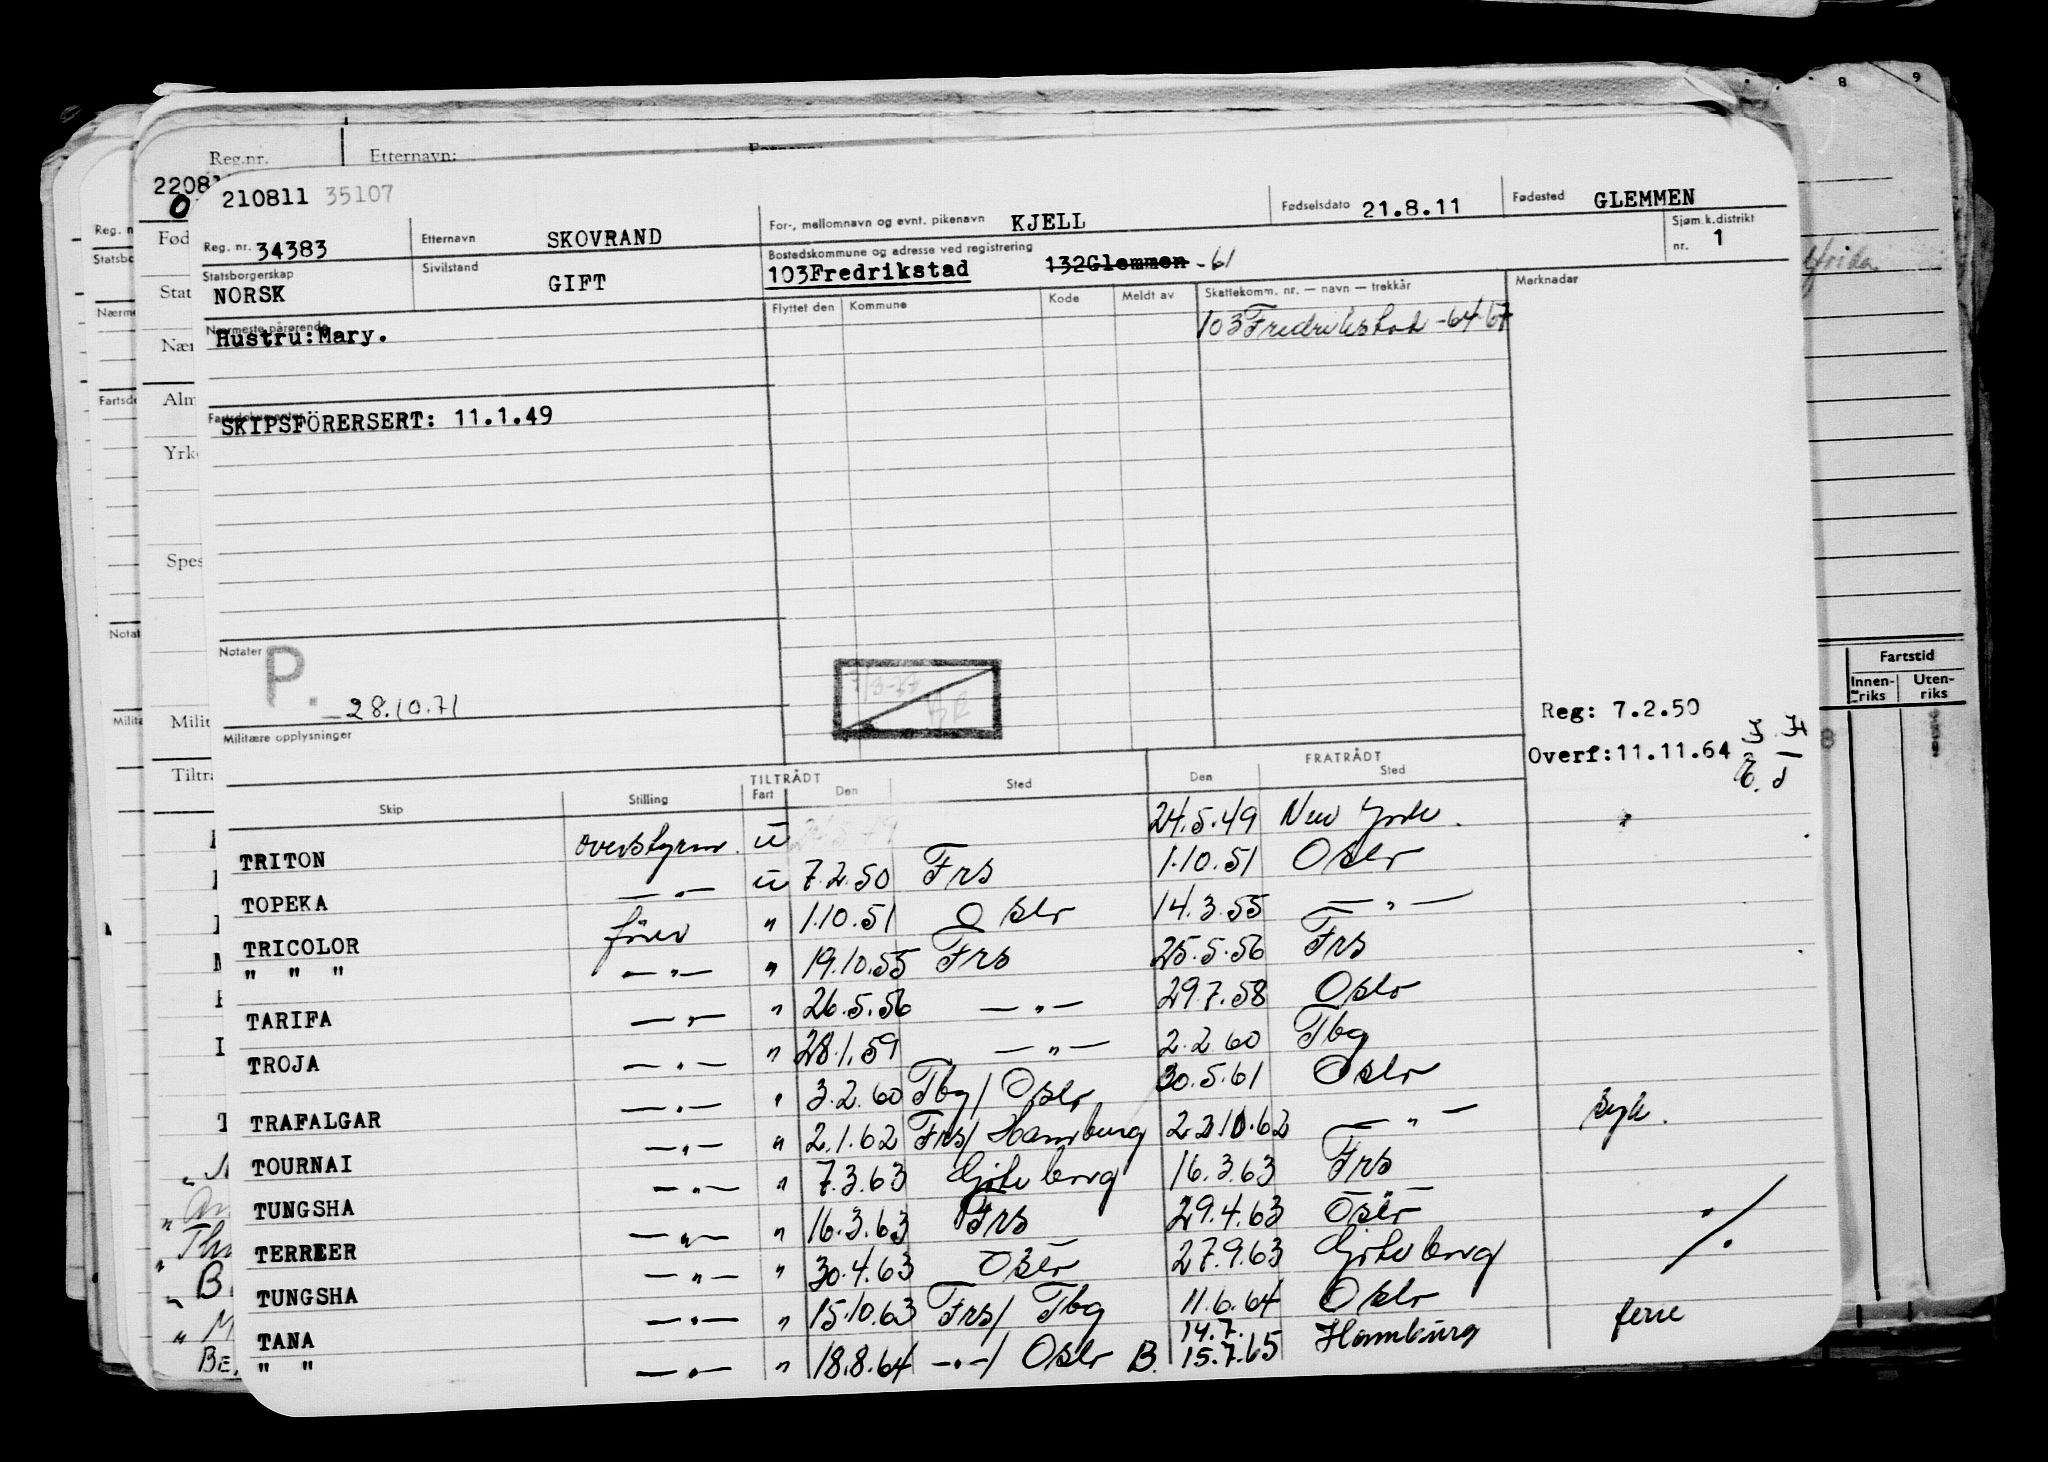 8 9
Reg.nr. Etternavn:
210811 35107
Reg. nr. 34383 Etternavn SKOVRAND For-, mellomnavn og evnt. pikenavn KJELL Fødselsdato 21.8.11 Fødested GLEMMEN
Statsborgerskap NORSK Sivilstand GIFT Bostedskommune og adresse ved registrering 103Fredrikstad 132Glemmen -61 Sjøm.k.distrikt nr. 1
Nærmeste pårørende Hustru:Mary. Flyttet den Kommune Kode Meldt av Skattekomm. nr. — navn — trekkår Merknader
103 Fredrikstad -64-67
Fartsdokumenter SKIPSFÖRERSERT: 11.1.49
Notater P.
- 28.10.71
Militære opplysninger
Reg: 7.2.50
Overf:11.11.64
Fartstid
Innen-riks Uten-riks
TILTRÅDT FRATRÅDT
Skip Stilling Fart Den Sted Den Sted
TRITON overstyrm. u 24.5.49 24.5.49 New York.
TOPEKA —"— u 7.2.50 Frs 1.10.51 Oslo
TRICOLOR förer " 1.10.51 Oslo 14.3.55 —"—
" " " —"— " 19.10.55 Frs 25.5.56 Frs
TARIFA —"— " 26.5.56 —"— 29.7.58 Oslo
TROJA —"— " 28.1.59 —"— 2.2.60 Tbg
TRAFALGAR —"— " 3.2.60 Tbg/ Oslo 30.5.61 Oslo
TOURNAI —"— " 2.1.62 Frs/ Hamburg 22.10.62 —"— syk.
TUNGSHA —"— " 7.3.63 Göteborg 16.3.63 Frs
TERRIER —"— " 16.3.63 Frs 29.4.63 Oslo
TUNGSHA —"— " 30.4.63 Oslo 27.9.63 Göteborg
TANA —"— " 15.10.63 Frs/ Tbg 11.6.64 Oslo ferie
" " —"— " 18.8.64 —"—/ Oslo B. 14.7. 15.7.65 Hamburg